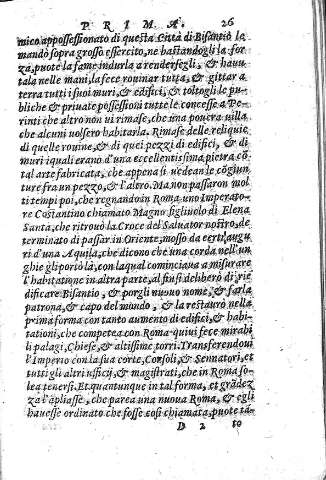 P R I M A. 26
mico appossessionato di questa Città di Bisantio la
mandò sopra grosso essercito, ne bastandogli la for
za, puote la fame indurla a renderseli, & hauu-
tala nelle mani, la fece rouinar tutta, & gittar a
terra tutti i suoi muri, & edifici, & toltogli le pu-
bliche & priuate possessioni tutte le concesse a Pe-
rinti che altro non ui rimase, che una pouera uilla
che alcuni uolsero habitarla. Rimase delle reliquie
di quelle rouine, & di quei pezzi di edifici, & di
muri iquali erano d'una eccellentissima pietra cō
tal arte fabricata, che appena si uedean le cōgiun
ture fra un pezzo, & l'altro. Ma non passaron mol
ti tempi poi, che regnando in Roma uno Imperato-
re Costantino chiamato Magno figliuolo di Elena
Santa, che ritrouò la Croce del Saluator nostro, de
terminato di passar in Oriente, mosso da certi augu
ri d'una Aquila, che dicono che una corda nell'un
ghie gli portò là, con laqual cominciaua a misurare
l'habitatione in altra parte, al fin si deliberò di rie
dificare Bisantio, & porgli nuouo nome, & farla
patrona, & capo del mondo, & la restaurò nella
prima forma con tanto aumento di edifici, & habi-
tationi, che competea con Roma quiui fece mirabi
li palagi, Chiese, & altissime torri. Transferendoui
l'Imperio con la sua corte, Consoli, & Sennatori, et
tutti gli altri ufficij, & magistrati, che in Roma so-
lea tenersi. Et quantunque in tal forma, et grādez
za l'āpliasse, che parea una nuoua Roma, & egli
hauesse ordinato che fosse cosi chiamata, puote tā-
D 2 to